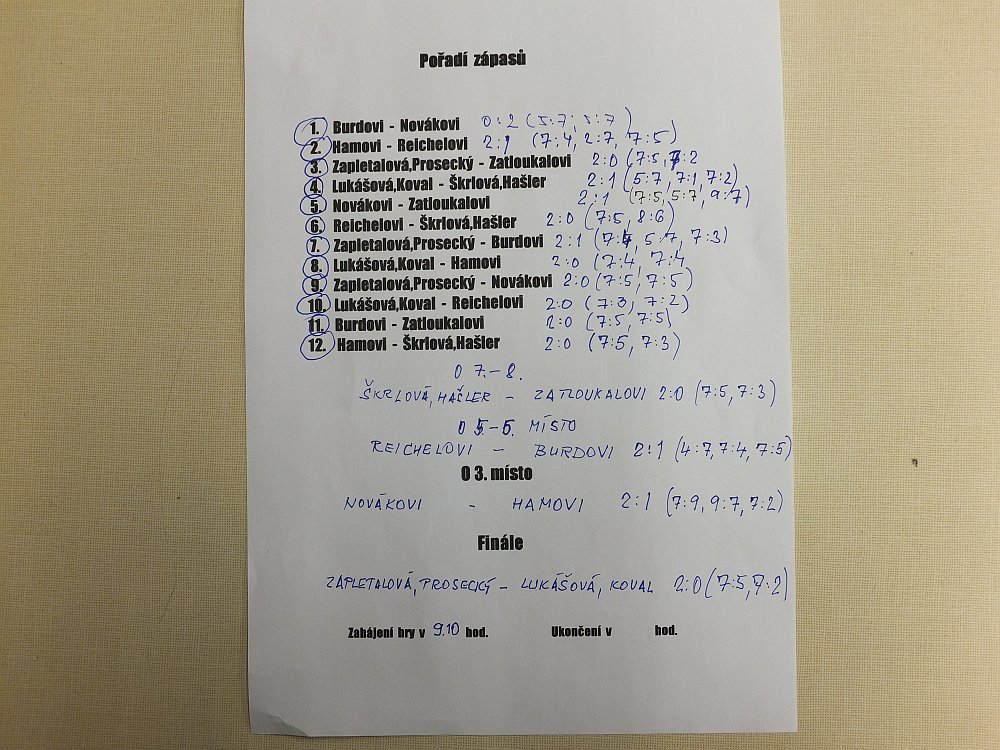 Pořadí zápasů
1. Burdovi - Novákovi 0:2 (5:7, 5:7)
2. Hamovi - Reichelovi 2:1 (7:4, 2:7, 7:5)
3. Zapletalová,Prosecký - Zatloukalovi 2:0 (7:5, 7:2
4. Lukášová,Koval - Škrlová,Hašler 2:1 (5:7, 7:1, 7:2)
5. Novákovi - Zatloukalovi 2:1 (7:5, 5:7, 9:7)
6. Reichelovi - Škrlová,Hašler 2:0 (7:5, 8:6)
7. Zapletalová,Prosecký - Burdovi 2:1 (7:4, 5:7, 7:3)
8. Lukášová,Koval - Hamovi 2:0 (7:4, 7:4
9. Zapletalová,Prosecký - Novákovi 2:0 (7:5, 7:5)
10. Lukášová,Koval - Reichelovi 2:0 (7:3, 7:2)
11. Burdovi - Zatloukalovi 2:0 (7:5, 7:5)
12. Hamovi - Škrlová,Hašler 2:0 (7:5, 7:3)
O 7.-8.
ŠKRLOVÁ, HAŠLER - ZATLOUKALOVI 2:0 (7:5, 7:3)
O 5.-6. MÍSTO
REICHELOVI - BURDOVI 2:1 (4:7, 7:4, 7:5)
O 3. místo
NOVÁKOVI - HAMOVI 2:1 (7:9, 9:7, 7:2)
Finále
ZAPLETALOVÁ, PROSECKÝ - LUKÁŠOVÁ, KOVAL 2:0 (7:5, 7:2)
Zahájení hry v 9.10 hod. Ukončení v hod.